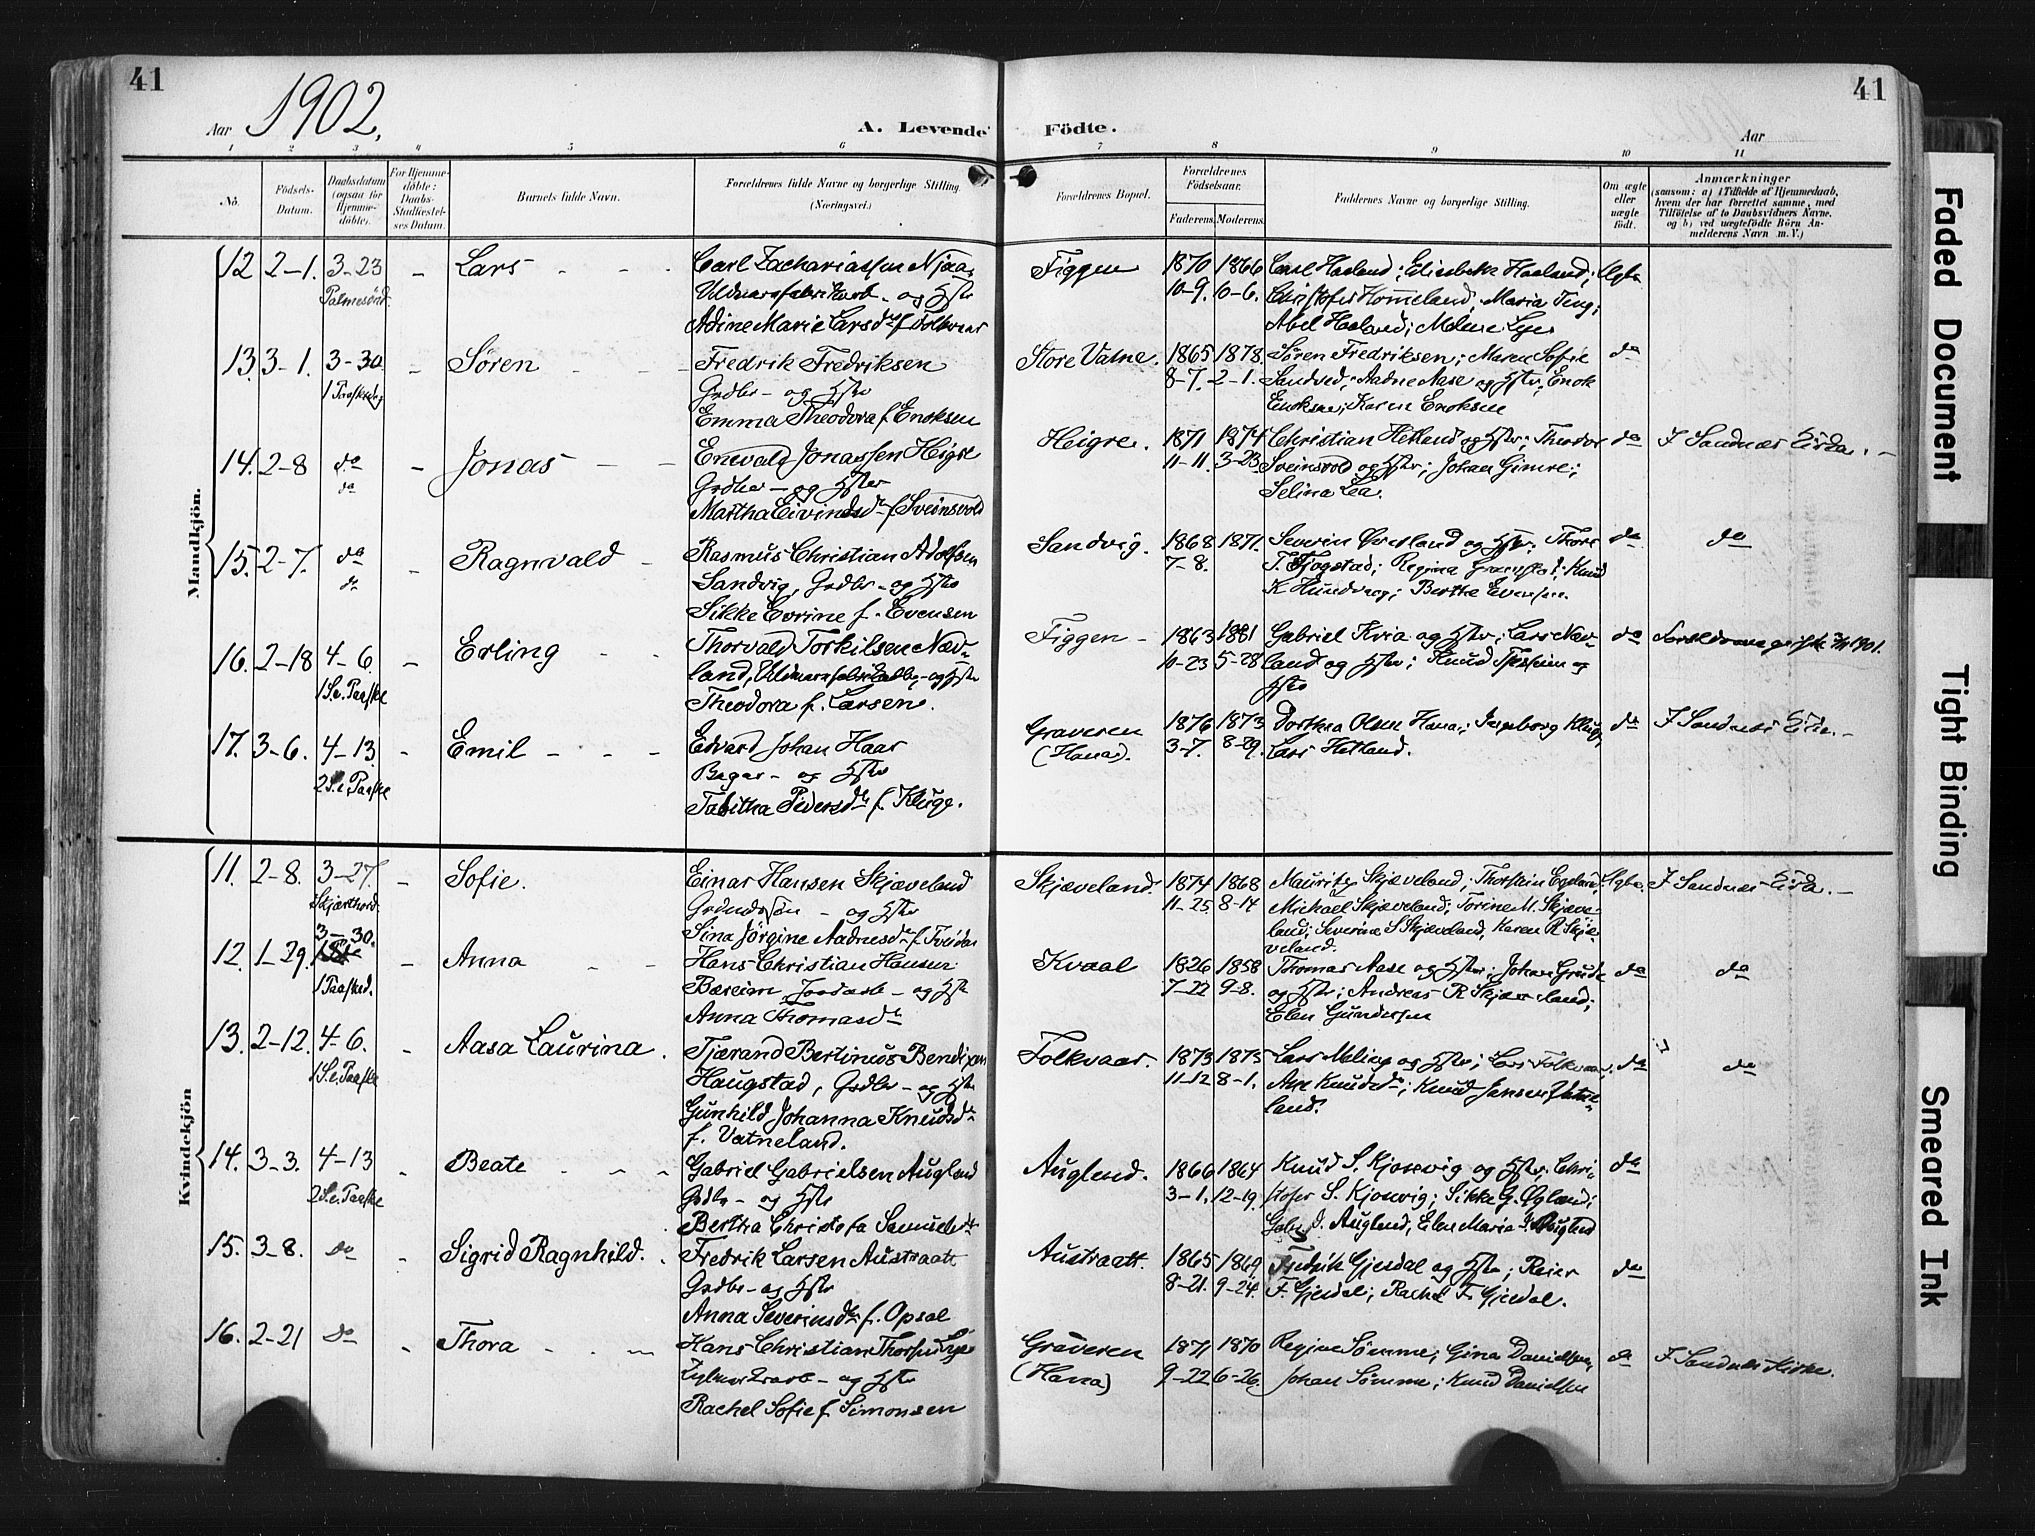 41
Aar 1902,
A. Levende Födte.
Aar
41
1 2 3 4 5 6 7 8 9 10 11
No.
Födsels-Datum.
Daabsdatum (ogsaa for Hjemmedöbte).
For Hjemmedöbte: Daabs-Stadfæstelses Datum.
Barnets fulde Navn.
Forældrenes fulde Navne og borgerlige Stilling. (Næringsvei.)
Forældrenes Bopæl.
Forældrenes Födselsaar.
Faderens. Moderens.
Faddernes Navne og borgerlige Stilling.
Om ægte eller uægte födt.
Anmærkninger
(saasom: a) i Tilfælde af Hjemmedaab, hvem der har forrettet samme, med Tilföielse af to Daabsvidners Navne. og b) ved uægtefödte Börn Anmelderens Navn m. V.)
Mandkjön.
12 2-1. 3-23 Palmesönd. - Lars - - - Carl Zachariassen Njaa, Uldvarefabrikarb. - og Hstr Adine Marie Larsdtr f. Folkvaar Figgen 1870 10-9. 1866 10-6. Carl Haaland; Elisabeth Haaland; Christofer Hommeland, Maria Ting; Abel Haaland; Malene Lye Ægte
13. 3-1. 3-30. 1 Paaskedag - Søren - - - Fredrik Fredriksen Grdbr - og Hstr Emma Theodora f. Enoksen Store Vatne. 1865 8-7. 1878 2-1. Søren Fredriksen; Maren Sofie Sandved; Aadne Aase og Hstr; Enok Enoksen; Karen Enoksen do
14. 2-8 do do - Jonas - - Enevald Jonassen Heigre Grdbr - og Hstr Martha Eivindsdtr f. Sveinsvold Heigre. 1871 11-11. 1874 3-23 Christian Hetland og Hstr; Theodor Sveinsvold og Hstr; Johan Gimre; Selina Lea. do I Sandnes Kirke. -
15. 2-7. do do - Ragnvald - Rasmus Christian Adolfsen Sandvig, Grdbr - og Hstr Sikke Evrine f. Evensen Sandvig. 1868 7-8. 1871. Severin Østland og Hstr; Thore T. Fjogstad; Regina; Knud K Hundvaag; Berthe Evensen. do do
16. 2-18 4-6 1 S.e. Paaske - Erling - - Thorvald Torkilsen Nævland, Uldvarefabrikarb. - og Hstr Theodora f. Larsen. Figgen - 1863 10-23 1881 5-28 Gabriel Kvia og Hstr; Lars Nævland og Hstr; Knud og Hstr do Forældrene gift 1901.
17. 3-6. 4-13. 2 S.e. Paaske - Emil - - - Edvard Johan Haar Bager - og Hstr Tabitha Pedersdtr f. Kluge. Graveren (Hana). 1876 3-7. 1873 8-29. Dorthea Olsen Hana; Ingeborg Kluge; Lars Hetland. do I Sandnes Kirke. -
Kvindekjön
11. 2-8. 3-27. Skjærthord. - Sofie. Einar Hansen Skjæveland Grdmdssön - og Hstr Sina Jörgine Aadnesdtr f. Tveidal Skjæveland. 1874 11-25 1868 8-14 Mauritz Skjæveland; Thorstein Egeland; Michael Skjæveland; Torine M. Skjæveland; Severine S Skjæveland, Karen R Skjæveland. Ægte. I Sandnes Kirke. -
12. 1-29. 3-30. 1 Paasked. - Anna - - Hans Christian Hansen Bæreim Jordarb - og Hstr Anna Thomasdtr Kvaal 1826 7-22 1858 9-8. Thomas Aase og Hstr; Johan Grude og Hstr; Andreas R Skjæveland; Elen Gundersen do do
13. 2-12. 4-6. 1 S.e. Paaske - Aasa Laurina. Tjærand Bertinus Bendixen Haugstad, Grdbr - og Hstr Gunhild Johanna Knudsdtr f. Vatneland. Folkvaar. 1873 11-12 1875 8-1. Lars Meling og Hstr; Lars Folkvaar; Ane Knudsdtr; Knud Jansen Vatneland. do do
14. 3-3. 4-13 2 S.e. Paaske - Beate - - - Gabriel Gabrielsen Augland Grdbr - og Hstr Bertha Christofa Samuelsdtr Auglend. 1866 3-1. 1864 12-19. Knud S. Kjosevig og Hstr; Christofer S. Kjosvig; Sikke G. Øgland; Augland; Elen Maria Augland do
15. 3-8. Do - Sigrid Ragnhild. - Fredrik Larsen Austraatt Grdbr - og Hstr Anna Severinsdtr f. Opsal Austraatt. 1865 8-21. 1869 9-24. Fredrik Gjesdal og Hstr; Reier F. Gjesdal; Rachel F. Gjesdal. do
16. 2-21 Do - Thora - - - Hans Christian Thorsen Lye - og Hstr Rachel Sofie f Simonsen Graveren (Hana) 1871 9-22 1870 6-26. Regine Sømme; Gina Danielsen; Johan Sømme; Knud Danielsen do I Sandnes Kirke.
Faded Document
Tight Binding
Smeared Ink